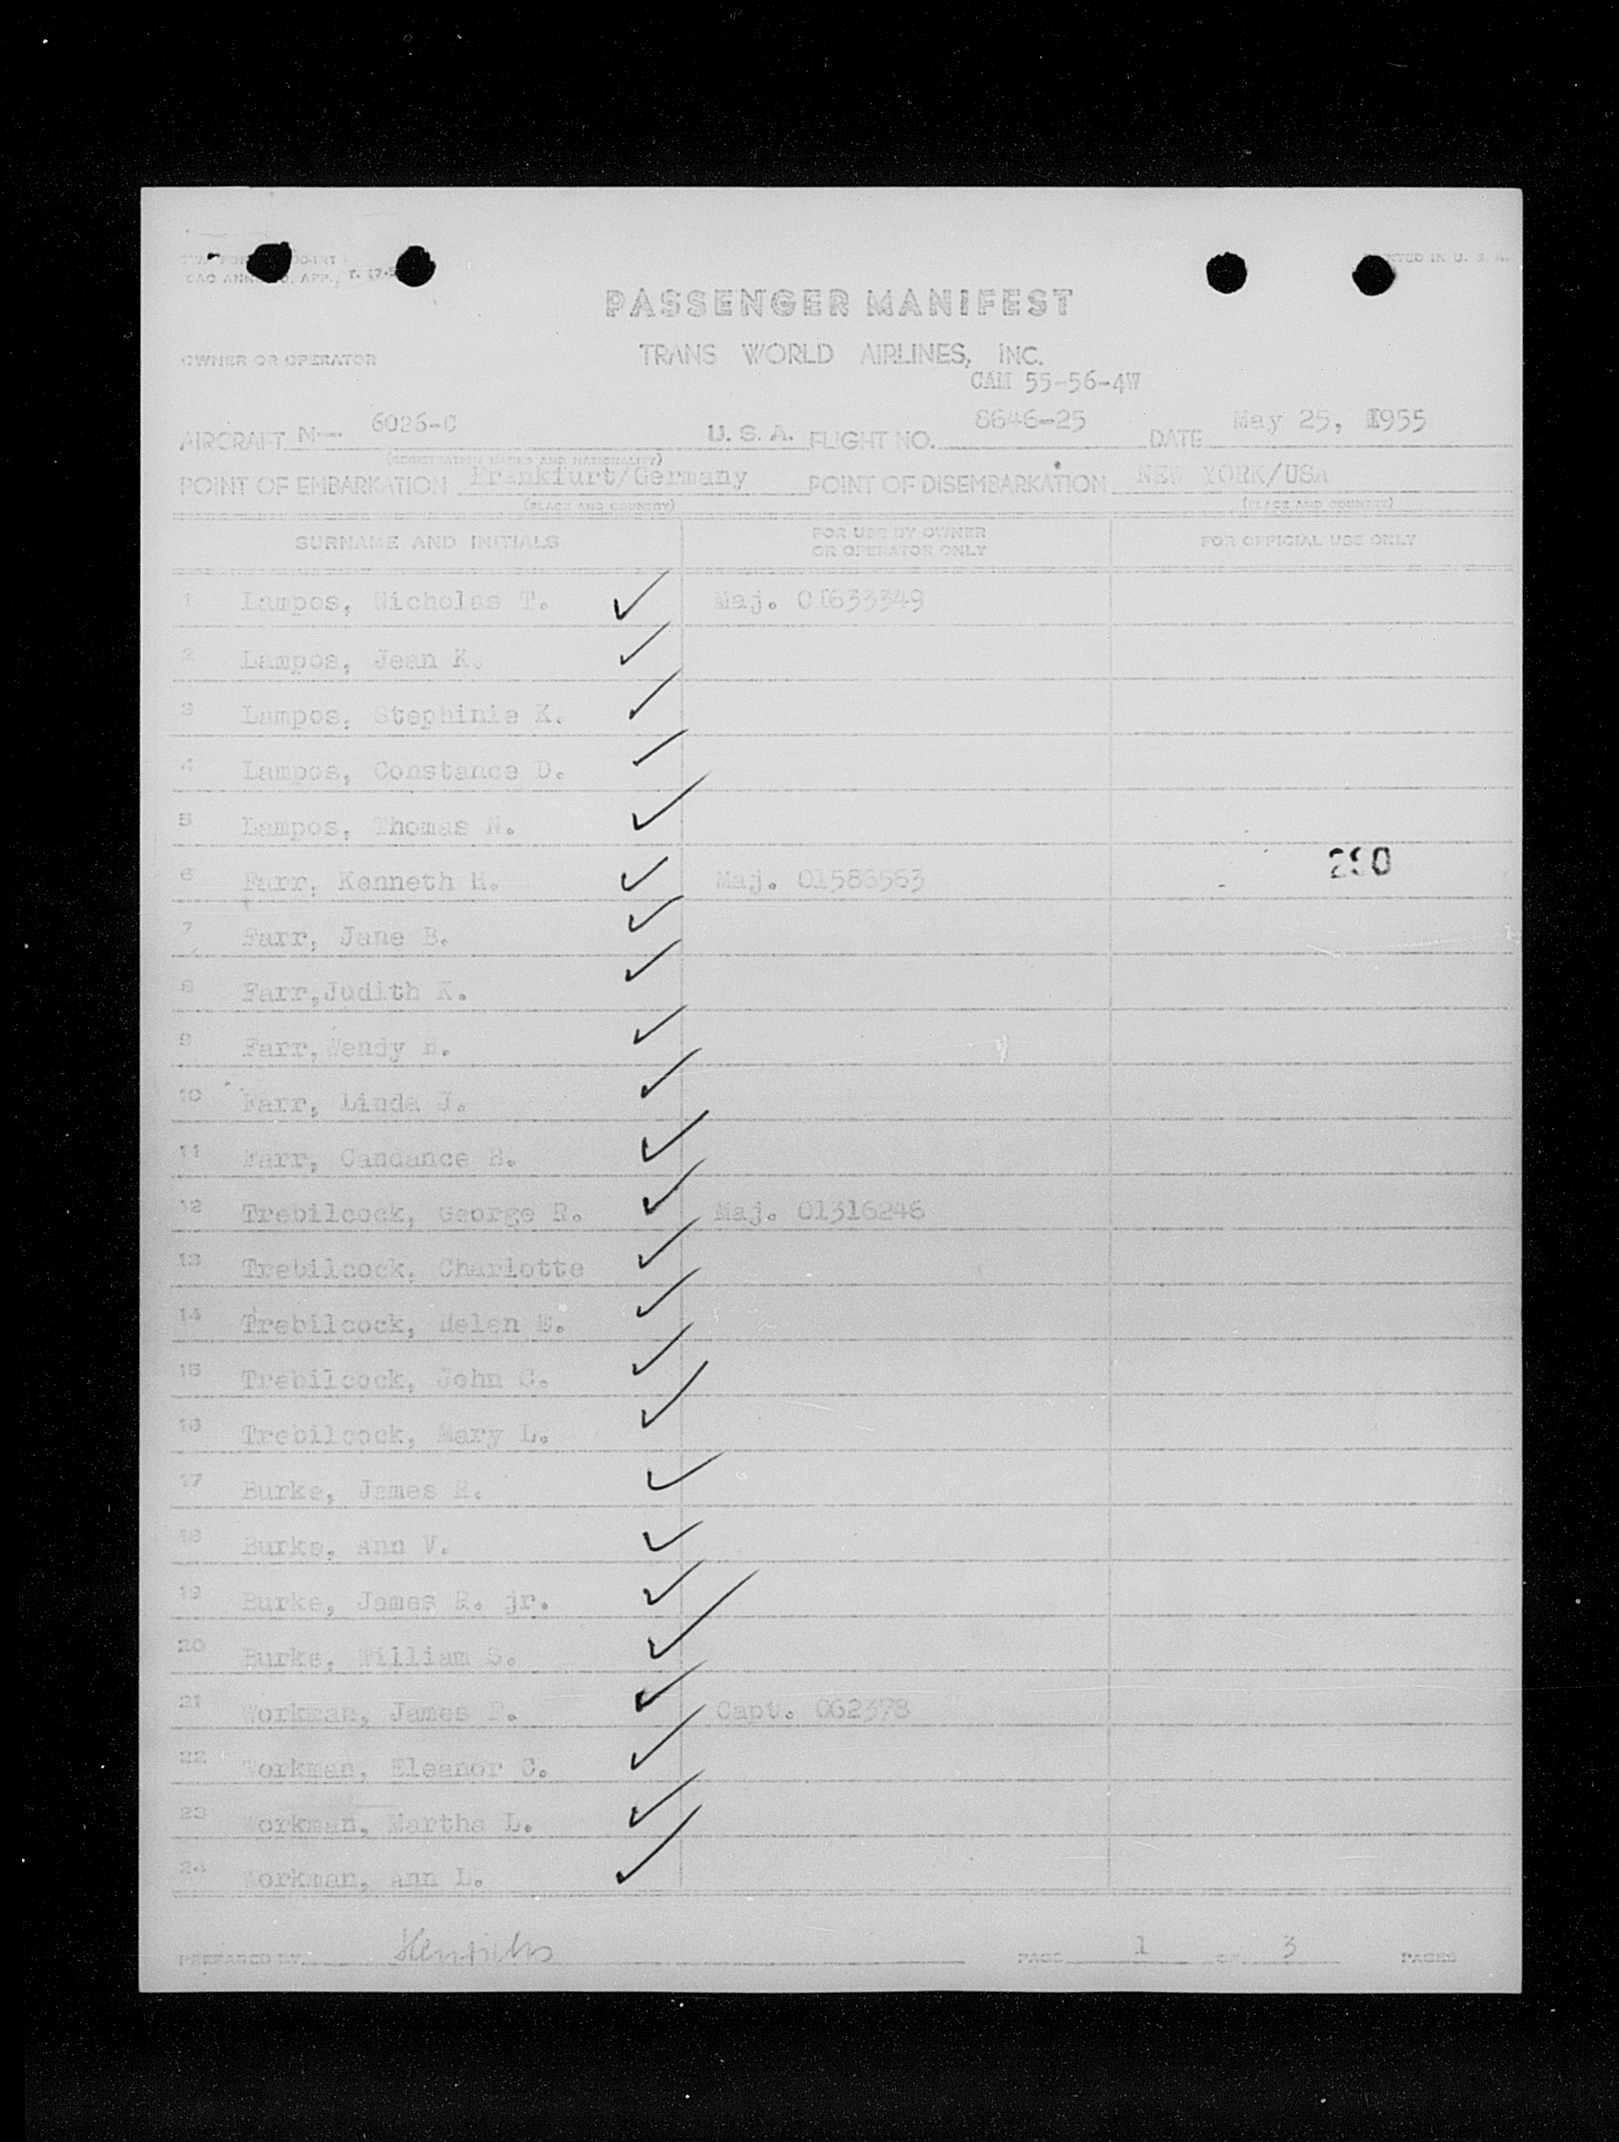 PRINTED IN U. S. A.
PASSENGER MANIFEST
OWNER OR OPERATOR TRANS WORLD AIRLINES, INC.
CAM 55-56-4W
AIRCRAFT N— 6026-C U. S. A. FLIGHT NO. 8646-25 DATE May 25, 1955
(REGISTRATION MARKS AND NATIONALITY)
POINT OF EMBARKATION Frankfurt/Germany POINT OF DISEMBARKATION NEW YORK/USA
(PLACE AND COUNTRY) (PLACE AND COUNTRY)
SURNAME AND INITIALS FOR USE BY OWNER OR OPERATOR ONLY FOR OFFICIAL USE ONLY
1 Lampos, Nicholas T. ✓ Maj. 01633349
2 Lampos, Jean K. ✓
3 Lampos, Stephinie K. ✓
4 Lampos, Constance D. ✓
5 Lampos, Thomas N. ✓
6 Farr, Kenneth H. ✓ Maj. 290
7 Farr, Jane B. ✓
8 Farr,Judith K. ✓
9 Farr,Wendy ✓
10 Farr, Linda J. ✓
11 Farr, Candance B. ✓
12 Trebilcock, George R. ✓ Maj. 01316246
13 Trebilcock, Charlotte ✓
14 Trebilcock, Helen E. ✓
15 Trebilcock, John C. ✓
16 Trebilcock, Mary L. ✓
17 Burke, James R. ✓
18 Burke, Ann V. ✓
19 Burke, James R. jr. ✓
20 Burke, William S. ✓
21 Workman, James P. ✓ Capt. 062378
22 Workman, Eleanor C. ✓
23 Workman, Martha L. ✓
24 Workman, Ann L. ✓
PREPARED BY PAGE 1 OF 3 PAGES